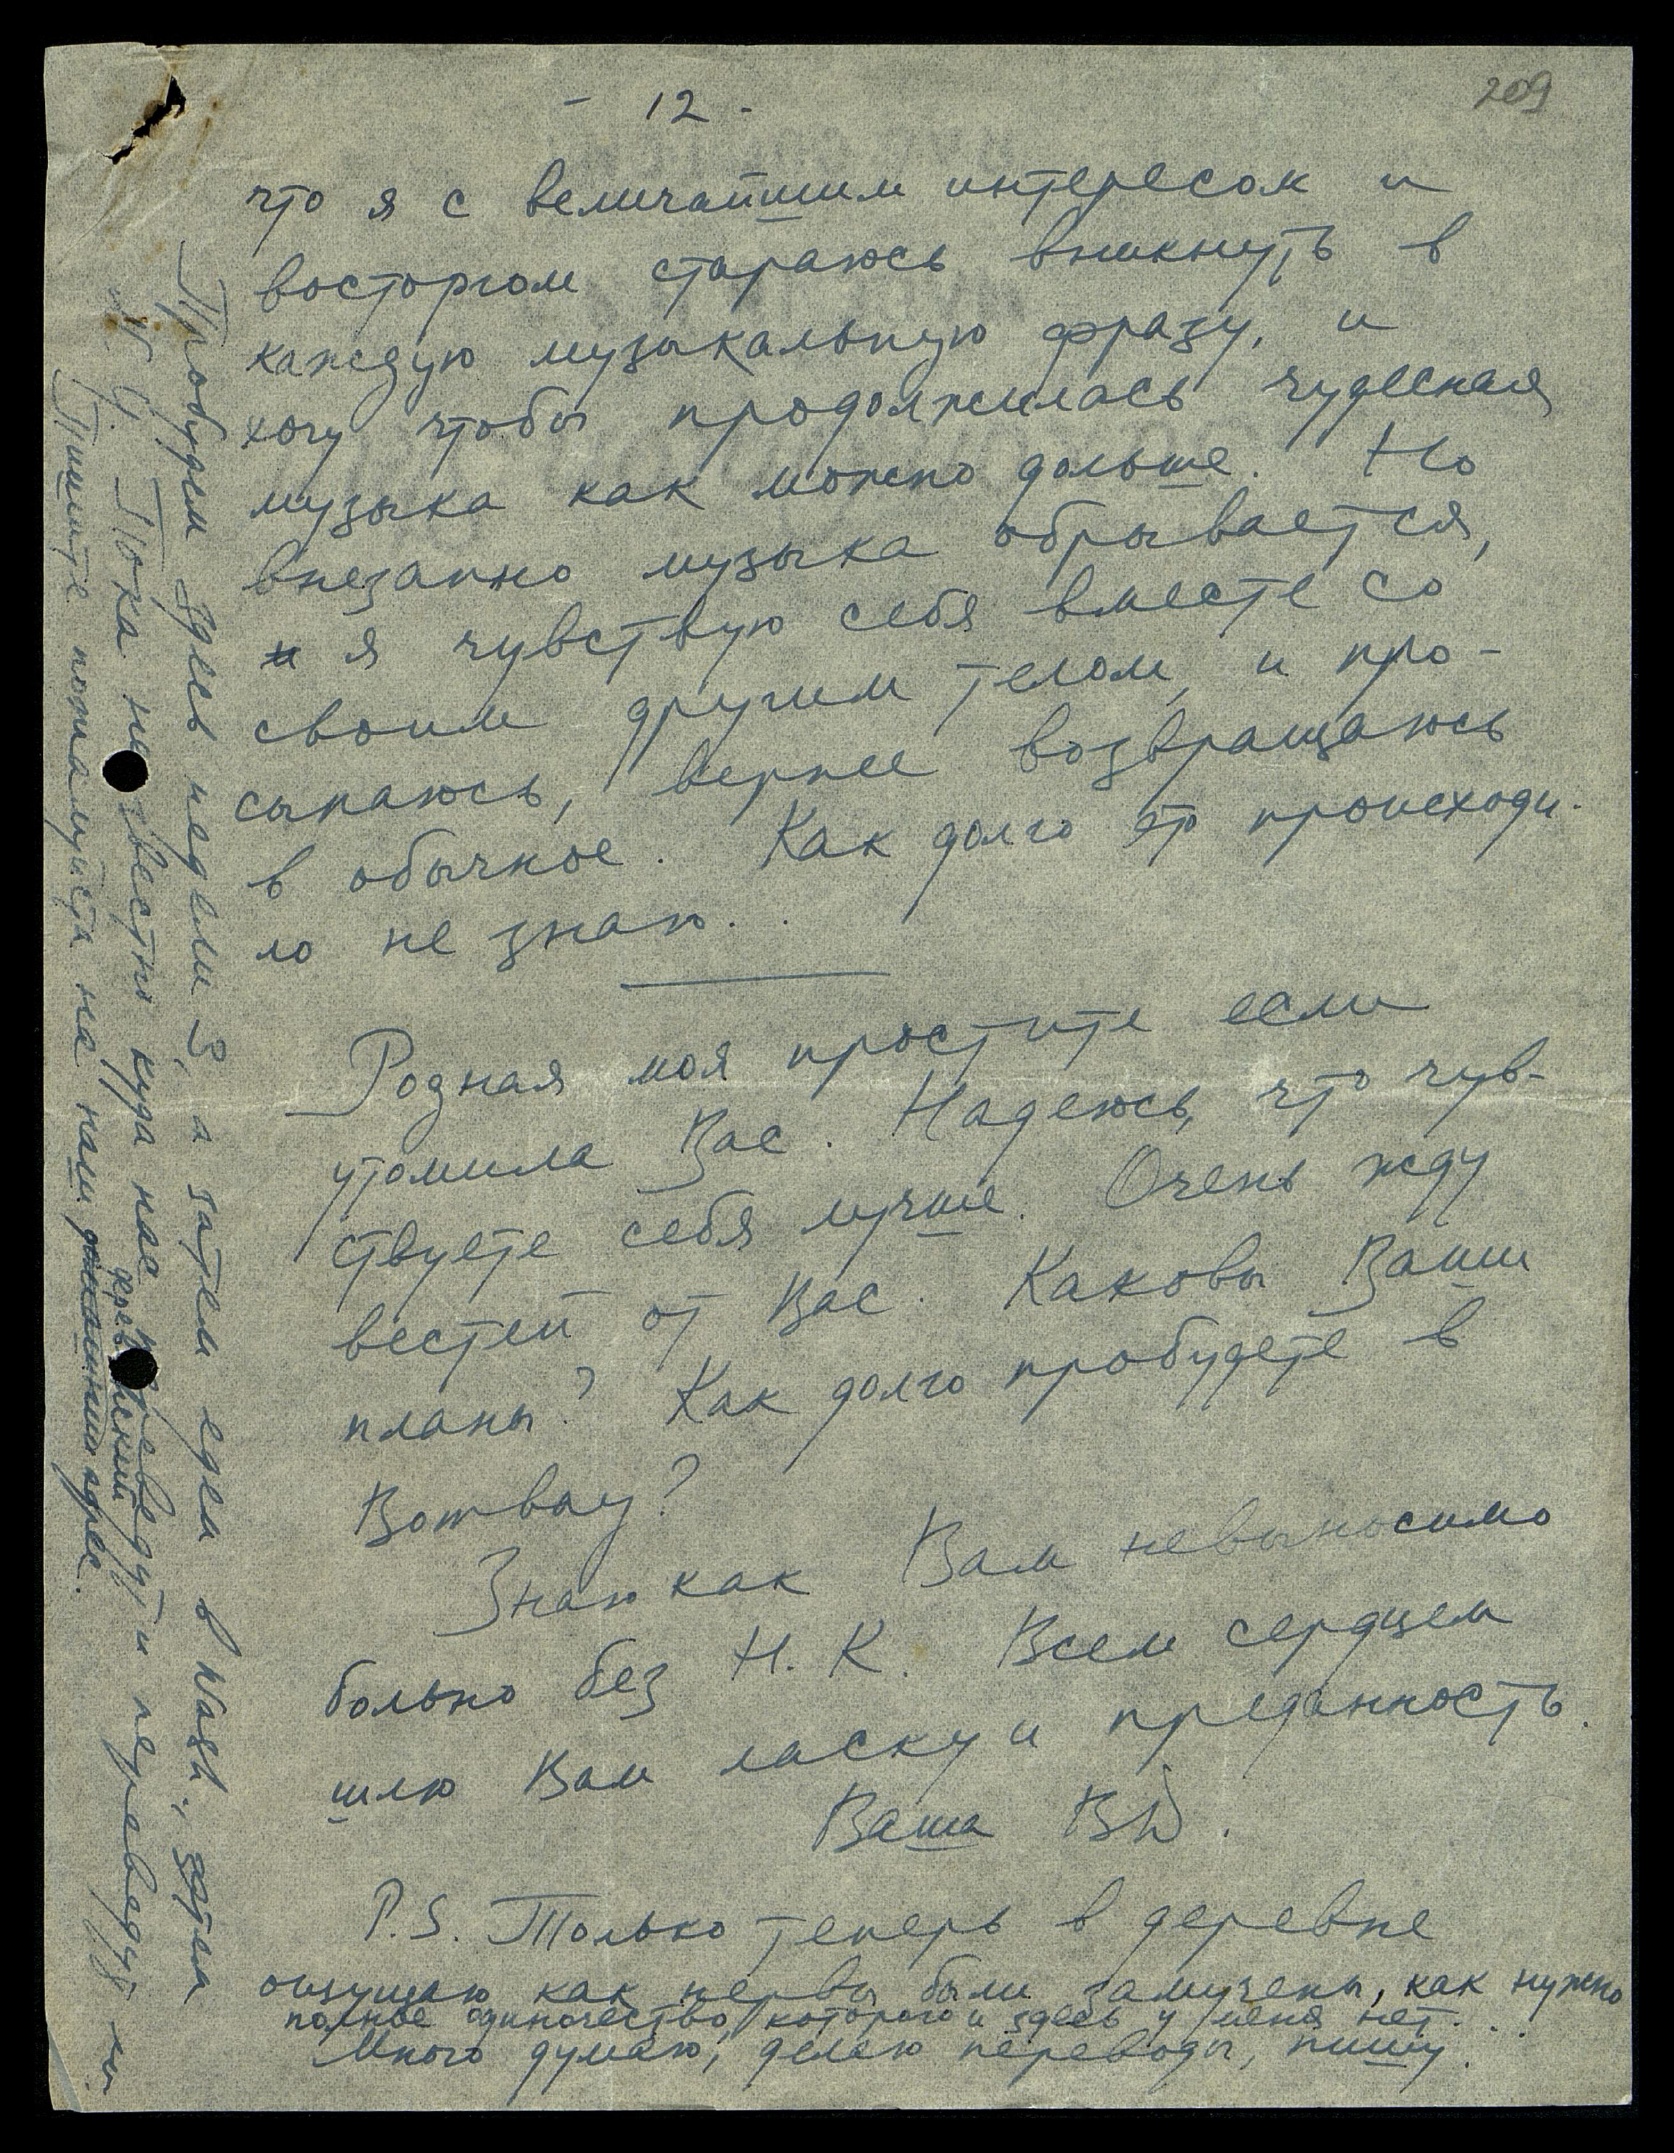 - 12 -
209
что я с величайшим интересом и
восторгом стараюсь вникнуть в
каждую музыкальную фразу, и
хочу чтобы продолжилась чудесная
музыка как можно дольше. Но
внезапно музыка обрывается,
и я чувствую себя вместе со
своим другим телом, и про-
сыпаюсь, вернее возвращаюсь
в обычное. Как долго это происходи-
ло не знаю.
Родная моя простите если
утомила Вас. Надеюсь, что чув-
ствуете себя лучше. Очень жду
вестей от Вас. Каковы Ваши
планы? Как долго пробудете в
Вотвау?
Знаю как Вам невыносимо
больно без Н. К. Всем сердцем
шлю Вам ласку и преданность.
Ваша
P.S. Только теперь в деревне
ощущаю как нервы были замучены, как нужно
полное одиночество, которого и здесь у меня нет...
Много думаю, делаю переводы, пишу.
Пробудем здесь недели 3, а затем едем в Wash., затем
N. Y. Пока неизвестно куда нас переведут и переведут ли.
Пишите пожалуйста на наш домашний адрес.